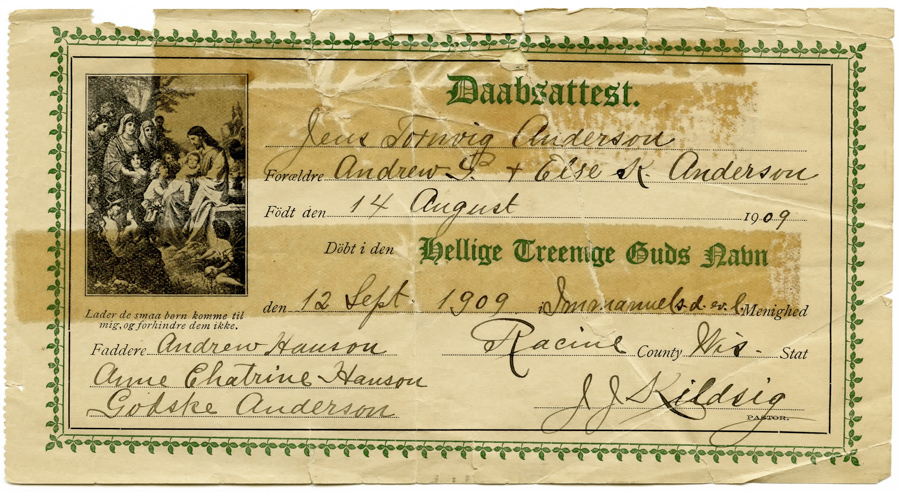 Daabsattest.
Jens Tornvig Anderson
Forældre Andrew P. + Else K. Anderson
Födt den 14 August 1909
Döbt i den Hellige Treenige Guds Navn
den 12 Sept. 1909 i Immanuels d. ev. l. Menighed
Racine County Wis. Stat
J J Kildsig
PASTOR.
Lader de smaa børn komme til
mig, og forhindre dem ikke.
Faddere Andrew Hanson
Anne Chatrine Hanson
Godske Anderson